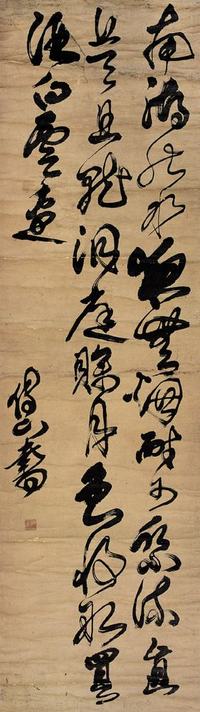 南湖秋水夜無煙耐可乘流直
上天且就洞庭賒月色將船買
酒白雲邊
傅山書